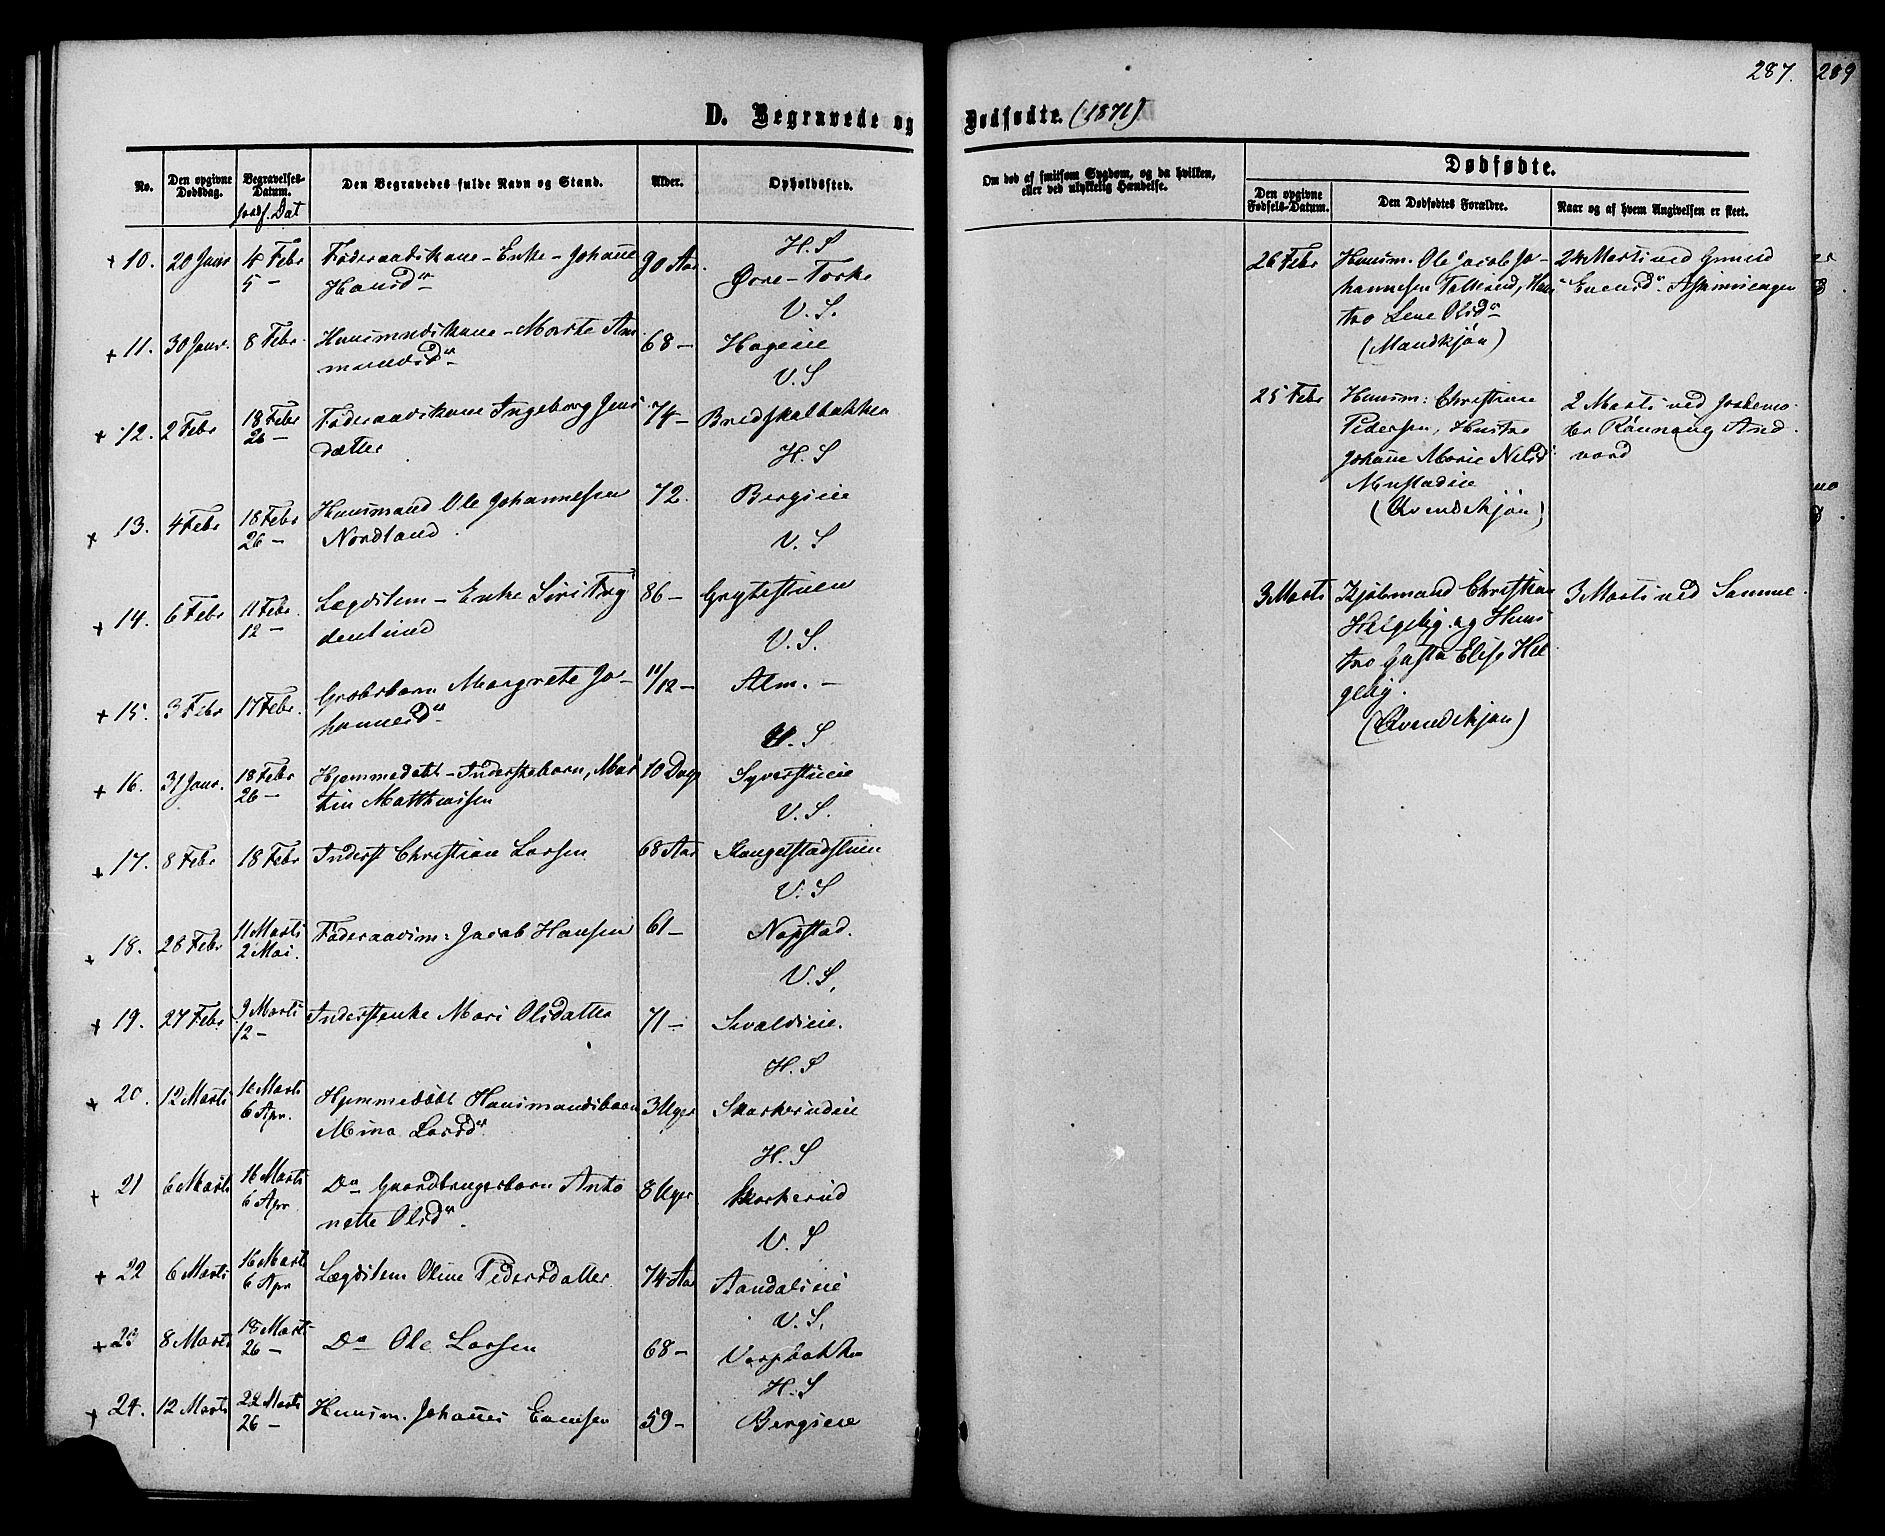 287. 289
D. Begravede og Dødfødte. (1871)
No.
Den opgivne Dødsdag.
Begravelses-Datum.
Jordf. Dat
Den Begravedes fulde Navn og Stand.
Alder.
Opholdssted.
Om død af smitsom Sygdom, og da hvilken, eller ved ulykkelig Hændelse.
Dødfødte.
Den opgivne Fødsels-Datum.
Den Dødfødtes Forældre.
Naar og af hvem Angivelsen er skeet.
H. S
10. 20 Janr 4 Febr Føderaadskone - Enke - Johanne 90 Aar.
5 — Hansdr Øvre-Torke
V. S.
11. 30 Janr. 8 Febr Huusmandskone - Marte 68 — Hageeie
V. S
12. 2 Febr 18 Febr Føderaadskone Ingeborg Jens 74 — Bredskalbakken
26 — datter
H. S
13. 4 Febr 18 Febr Huusmand Ole Johannesen 72. Bergseie
26 — Nordland.
V. S
14. 6 Febr 11 Febr Lægdslem - Enke Siri 86 — Grytestuen
12 —
V. S.
15. 3 Febr 17 Febr. Margrete Jo- 11/12 — Alm. —
hannesdr
V. S
16. 31 Janr. 18 Febr Hjemmedøbt - Inderstebarn, Mar 10 Dage Syverstueie
26 — tin Matthiassen
V. S.
17. 8 Febr 18 Febr Inderst Christian Larsen 68 Aar
V. S
18. 28 Febr 11 Marts Føderaadsm: Jacob Hansen 61 — Napstad.
2 Mai.
V. S.
19. 27 Febr 9 Marts Inderstenke Mari Olsdatter 71 —
12 —
H. S
20. 12 Marts 16 Marts Hjemmedøbt Huusmandsbarn 3 Uger Skarkerudeie
6 Apr. Mina Larsdr
H. S
21 6 Marts 16 Marts Do Gaardbrugerbarn Anto 8 Uger Skarkerud
6 Apr nette Olsdr.
V. S
22 6 Marts 16 Marts Lægdslem Oline Pedersdatter 74 Aar Aandalseie
6 Apr
V. S.
23 8 Marts 18 Marts Do Ole Larsen 68 —
26 —
H. S
24. 12 Marts 22 Marts Huusm. Johannes Evensen 59 — Bergseie
26 —
26 Febr Huusm. Ole Jacob Jo- 24 Marts ved
hannesen Evensdr.
tro Lene Olsdr
(Mandkjøn)
25 Febr Huusm: Christian 2 Marts ved Jordemo-
Pedersen, Hustro der Rønnaug And.
Johanne Marie Nilsd vord
Mustadeie
(Qvindekjøn)
3 Marts Kjøbmand Christian 3 Marts ved Samme.
Helgeby og Hus
tro Elise Hel
geby.
(Qvindekjøn)